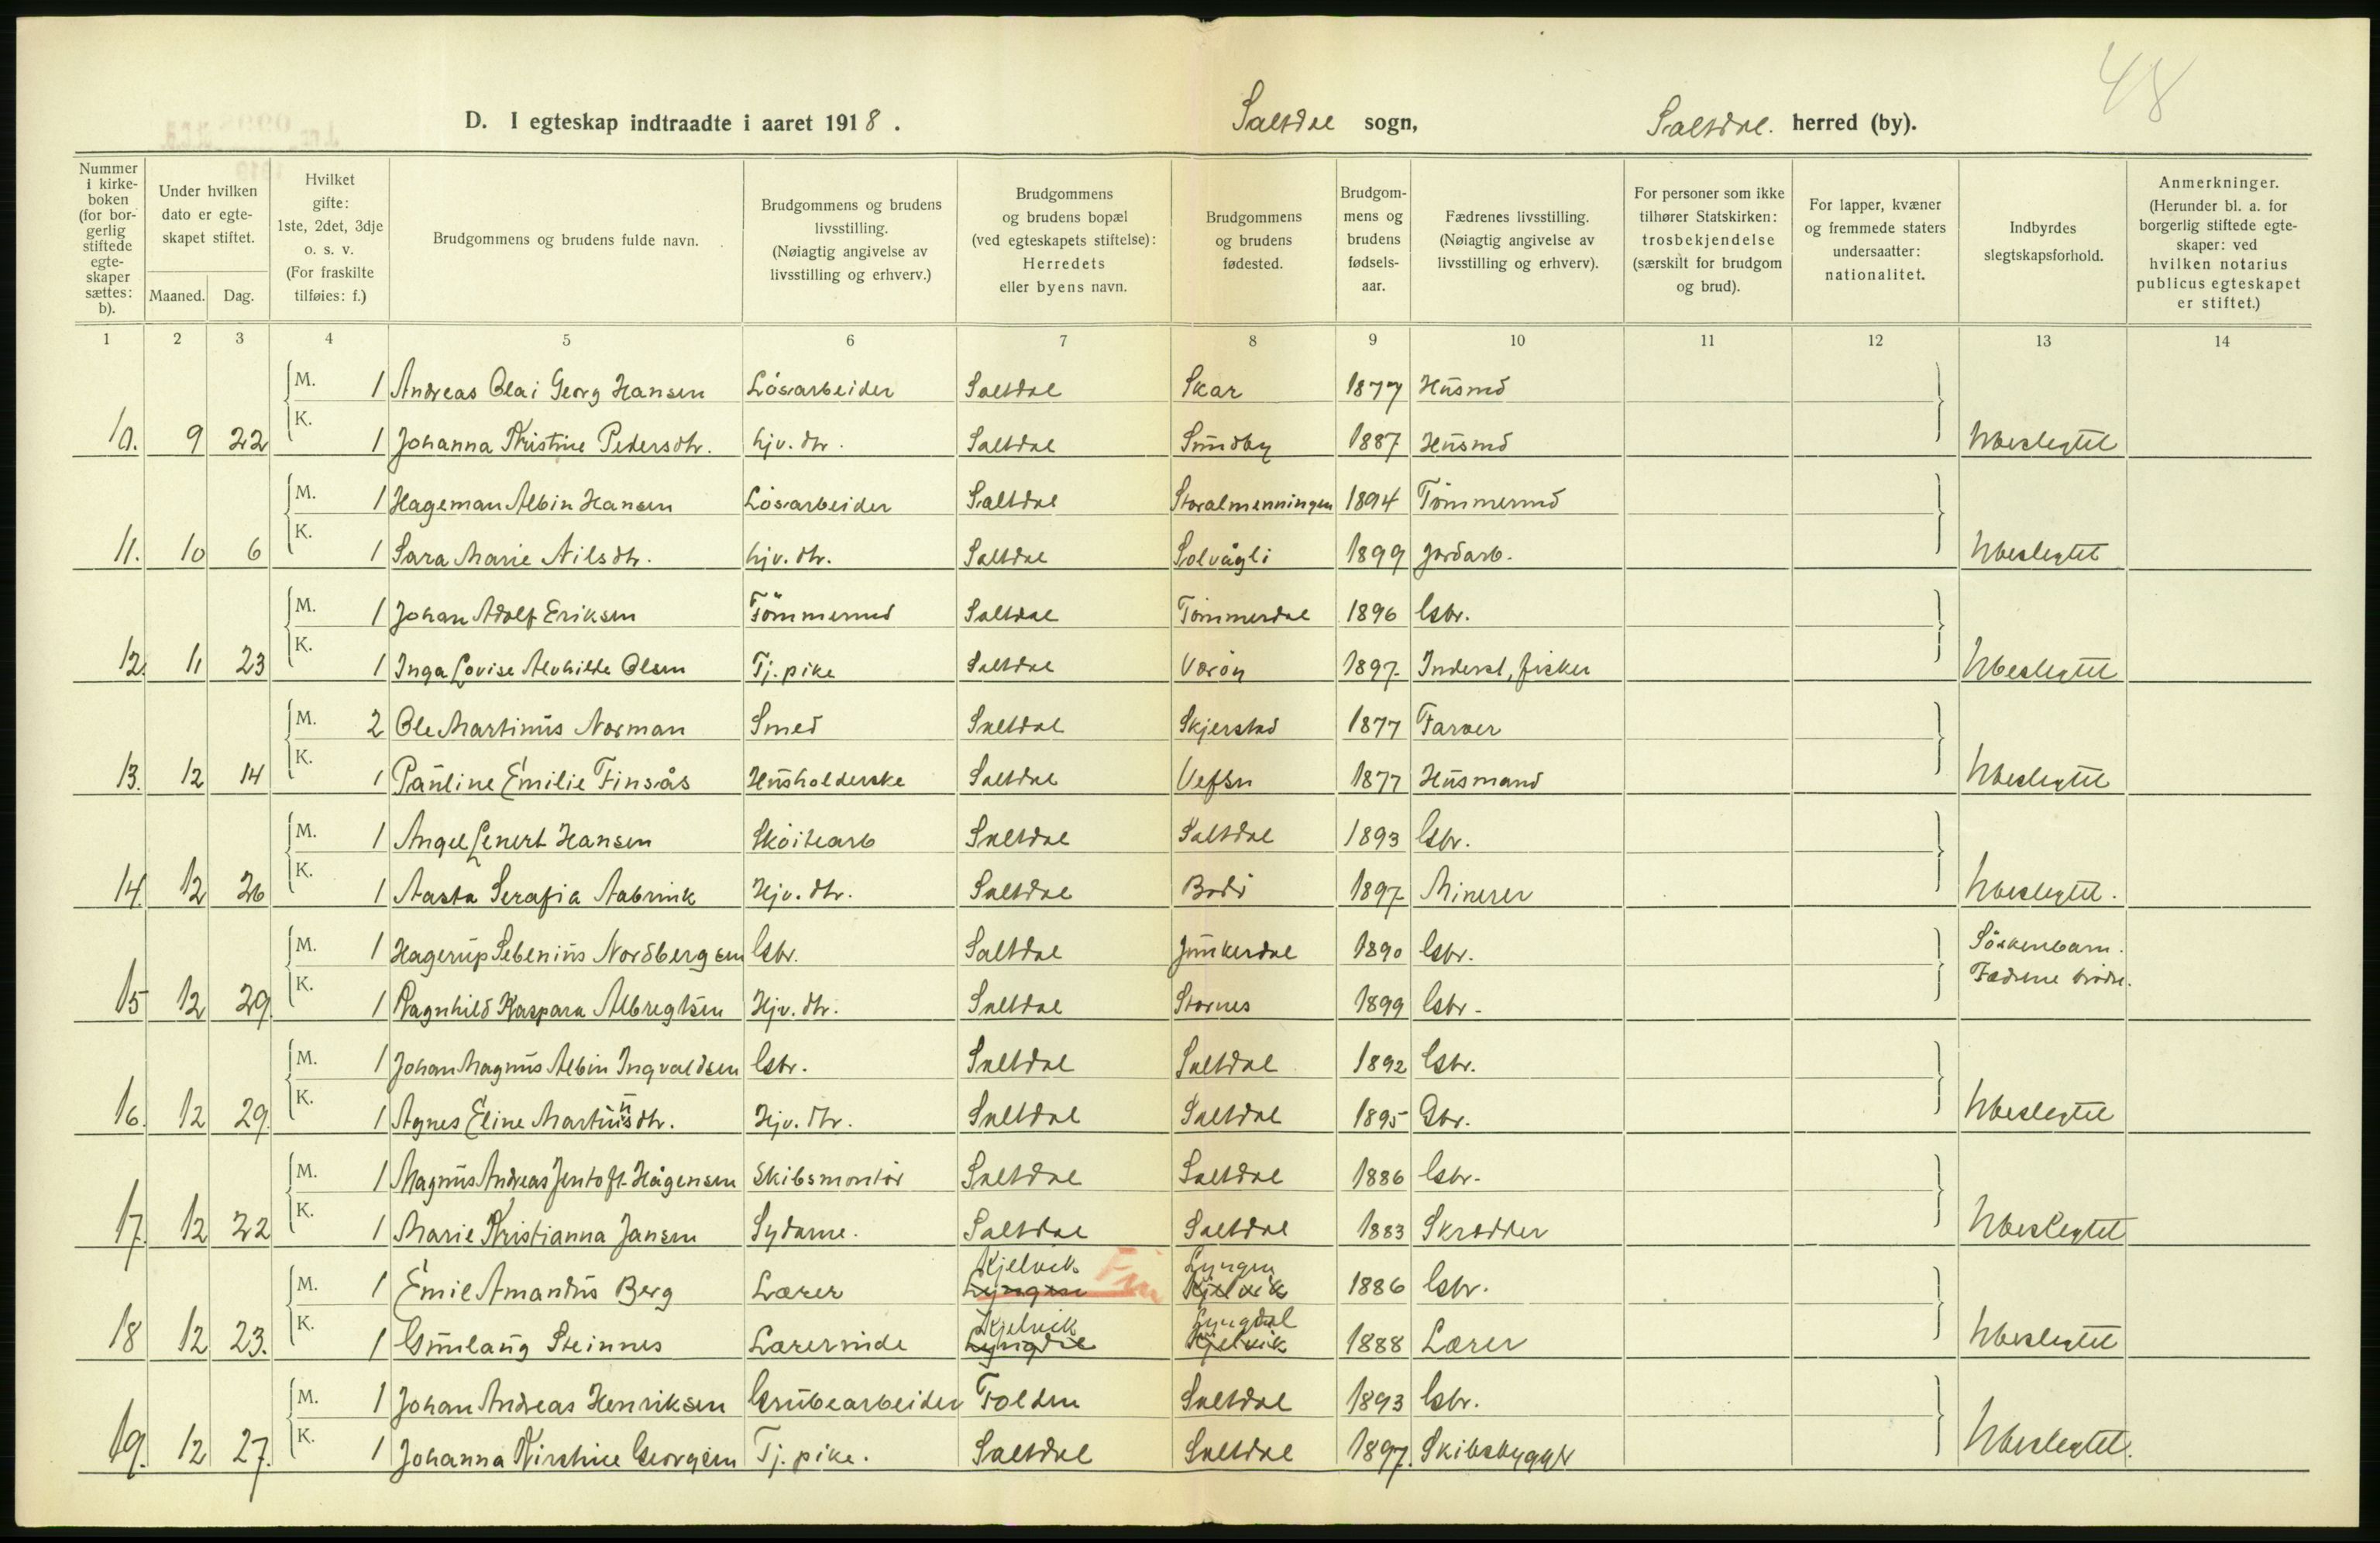 48
D. I egteskap indtraadte i aaret 1918. Saltdal sogn, Saltdal. herred (by).
Nummer i kirke-boken (for bor-gerlig stiftede egte-skaper sættes: b).
Under hvilken dato er egte-skapet stiftet.
Maaned. Dag.
Hvilket gifte: 1ste, 2det, 3dje o. s. v. (For fraskilte tilføies: f.)
Brudgommens og brudens fulde navn.
Brudgommens og brudens livsstilling. (Nøiagtig angivelse av livsstilling og erhverv.)
Brudgommens og brudens bopæl (ved egteskapets stiftelse): Herredets eller byens navn.
Brudgommens og brudens fødested.
Brudgom-mens og brudens fødsels-aar.
Fædrenes livsstilling. (Nøiagtig angivelse av livsstilling og erhverv).
For personer som ikke tilhører Statskirken: trosbekjendelse (særskilt for brudgom og brud).
For lapper, kvæner og fremmede staters undersaatter: nationalitet.
Indbyrdes slegtskapsforhold.
Anmerkninger. (Herunder bl. a. for borgerlig stiftede egte-skaper: ved hvilken notarius publicus egteskapet er stiftet.)
1 2 3 4 5 6 7 8 9 10 11 12 13 14
M. 1 Andreas Olai Georg Hansen Lösarbeider Saltdal Skar 1877 Husmd
10. 9 22 K. 1 Johanna Kristine Pedersdtr. hjv. dtr. Saltdal Sundby 1887 Husmd Ubeslegtet
M. 1 Hageman Albin Hansen Lösarbeider Saltdal Storalmenningen 1894 Tömmermd
11. 10 6 K. 1 Sara Marie Nilsdtr. hjv. dtr. Saltdal Solvågli 1899 jordarb. Ubeslegtet
M. 1 Johan Adolf Eriksen Tömmermd Saltdal Tömmerdal 1896 Gbr.
12. 11 23 K. 1 Inga Lovise Alvhilde Olsen Tj. pike Saltdal Værøy 1897. Inderst, fisker Ubeslegtet
M. 2 Ole Martinus Norman Smed Saltdal Skjerstad 1877 Farver
13. 12 14 K. 1 Pauline Emilie Finsås Husholderske Saltdal Vefsn 1877 Husmand Ubeslegtet
M. 1 Angel Lenert Hansen Skøitearb Saltdal Saltdal 1893 Gbr.
14. 12 26 K. 1 Aasta Serafia Aabrink Hjv. dtr. Saltdal Bodö 1897 Minerer Ubeslegtet.
M. 1 Hagerup Sebenius Nordbergsen Gbr. Saltdal Junkerdal 1890 Gbr. Söskenbarn.
15 12 29. K. 1 Ragnhild Kaspara Albregtsen Hjv. dtr. Saltdal Stornes 1899 Gbr. Fædrene brødre.
M. 1 Johan Magnus Albin Ingvaldsen Gbr. Saltdal Saltdal 1892 Gbr.
16. 12 29. K. 1 Agnes Eline Martinusdtr. Hjv. dtr. Saltdal Saltdal 1895 Gbr. Ubeslegtet
M. 1 Magnus Andreas Jentoft Hågensen Skibsmontör Saltdal Saltdal 1886 Gbr.
17. 12 22 K. 1 Marie Kristianna Jansen Sydame. Saltdal Saltdal 1883 Skrædder Ubeslegtet
Kjelvik Fin Lyngen
M. 1 Emil Amandus Berg Lærer Lyngen Kjelvik 1886 Gbr.
Kjelvik Lyngdal
18 12 23. K. 1 Gunlaug Steinnes Lærerinde Lyngdal Kjelvik 1888 Lærer Ubeslegtet
M. 1 Johan Andreas Henriksen Grubearbeider Folden Saltdal 1893 Gbr.
19. 12 27. K. 1 Johanna Kirstine Georgsen Tj. pike. Saltdal Saltdal 1897. Skibsbygger Ubeslegtet.